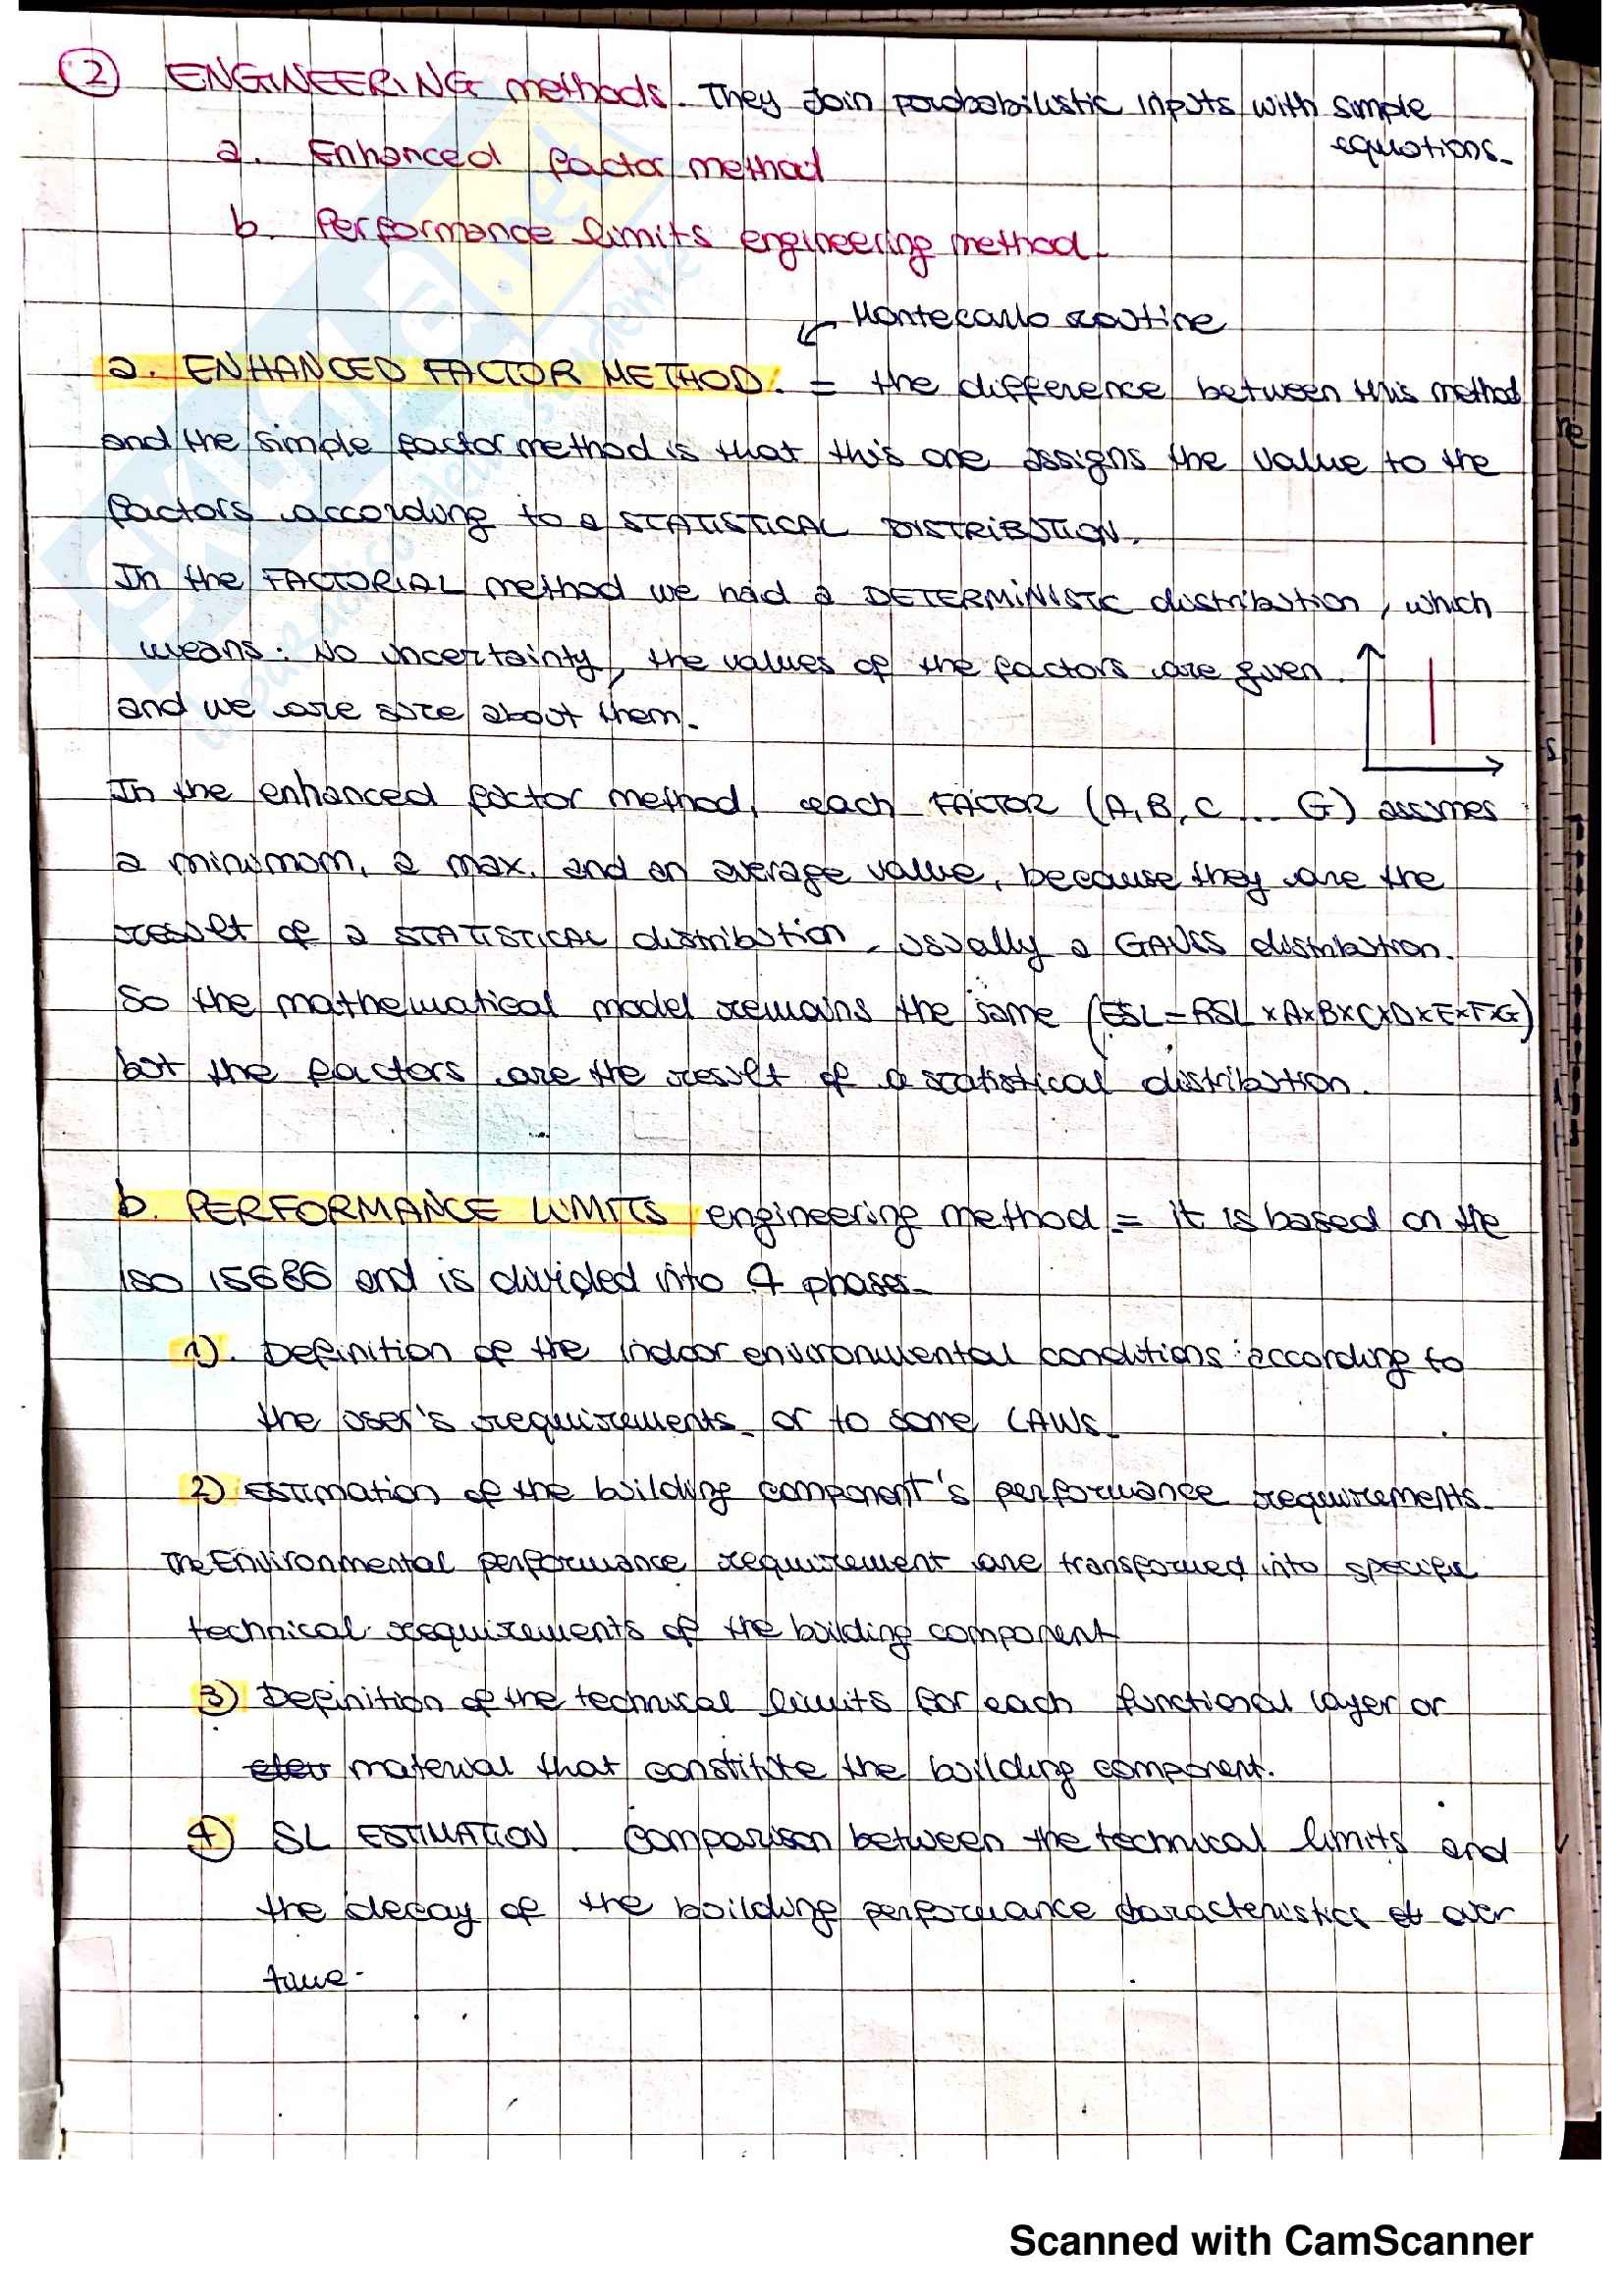 2 ENGINEERING methods. They Join porobabilistic inputs with simple
equations.
a. Enhanced factor method
b. Performance limits engineering method.
Montecarlo routine
a. ENHANCED FACTOR METHOD. = the difference between this method
and the simple factor method is that this one assigns the value to the
factors according to a STATISTICAL DISTRIBUTION.
In the FACTORIAL method we had a DETERMINISTIC distribution, which
means: No uncertainty, the values of the factors are given.
and we are sure about them.
In the enhanced factor method, each FACTOR (A, B, C ... G) assumes
a minimum, a max. and an average value, because they are the
result of a STATISTICAL distribution, usually a GAUSS distribution.
So the mathematical model remains the same (ESL = RSL x A x B x C x D x E x F x G)
but the factors are the result of a statistical distribution.
b. PERFORMANCE LIMITS engineering method = it is based on the
ISO 15686 and is divided into 4 phases.
1). Definition of the indoor environmental conditions: according to
the user's requirements or to some LAWS.
2) ESTIMATION of the building component's performance requirements.
The Environmental performance requirement are transformed into specific
technical requirements of the building component
3) Definition of the technical limits for each functional layer or
material that constitute the building component.
4) SL ESTIMATION. Comparison between the technical limits and
the decay of the building performance characteristics over
time.
Scanned with CamScanner